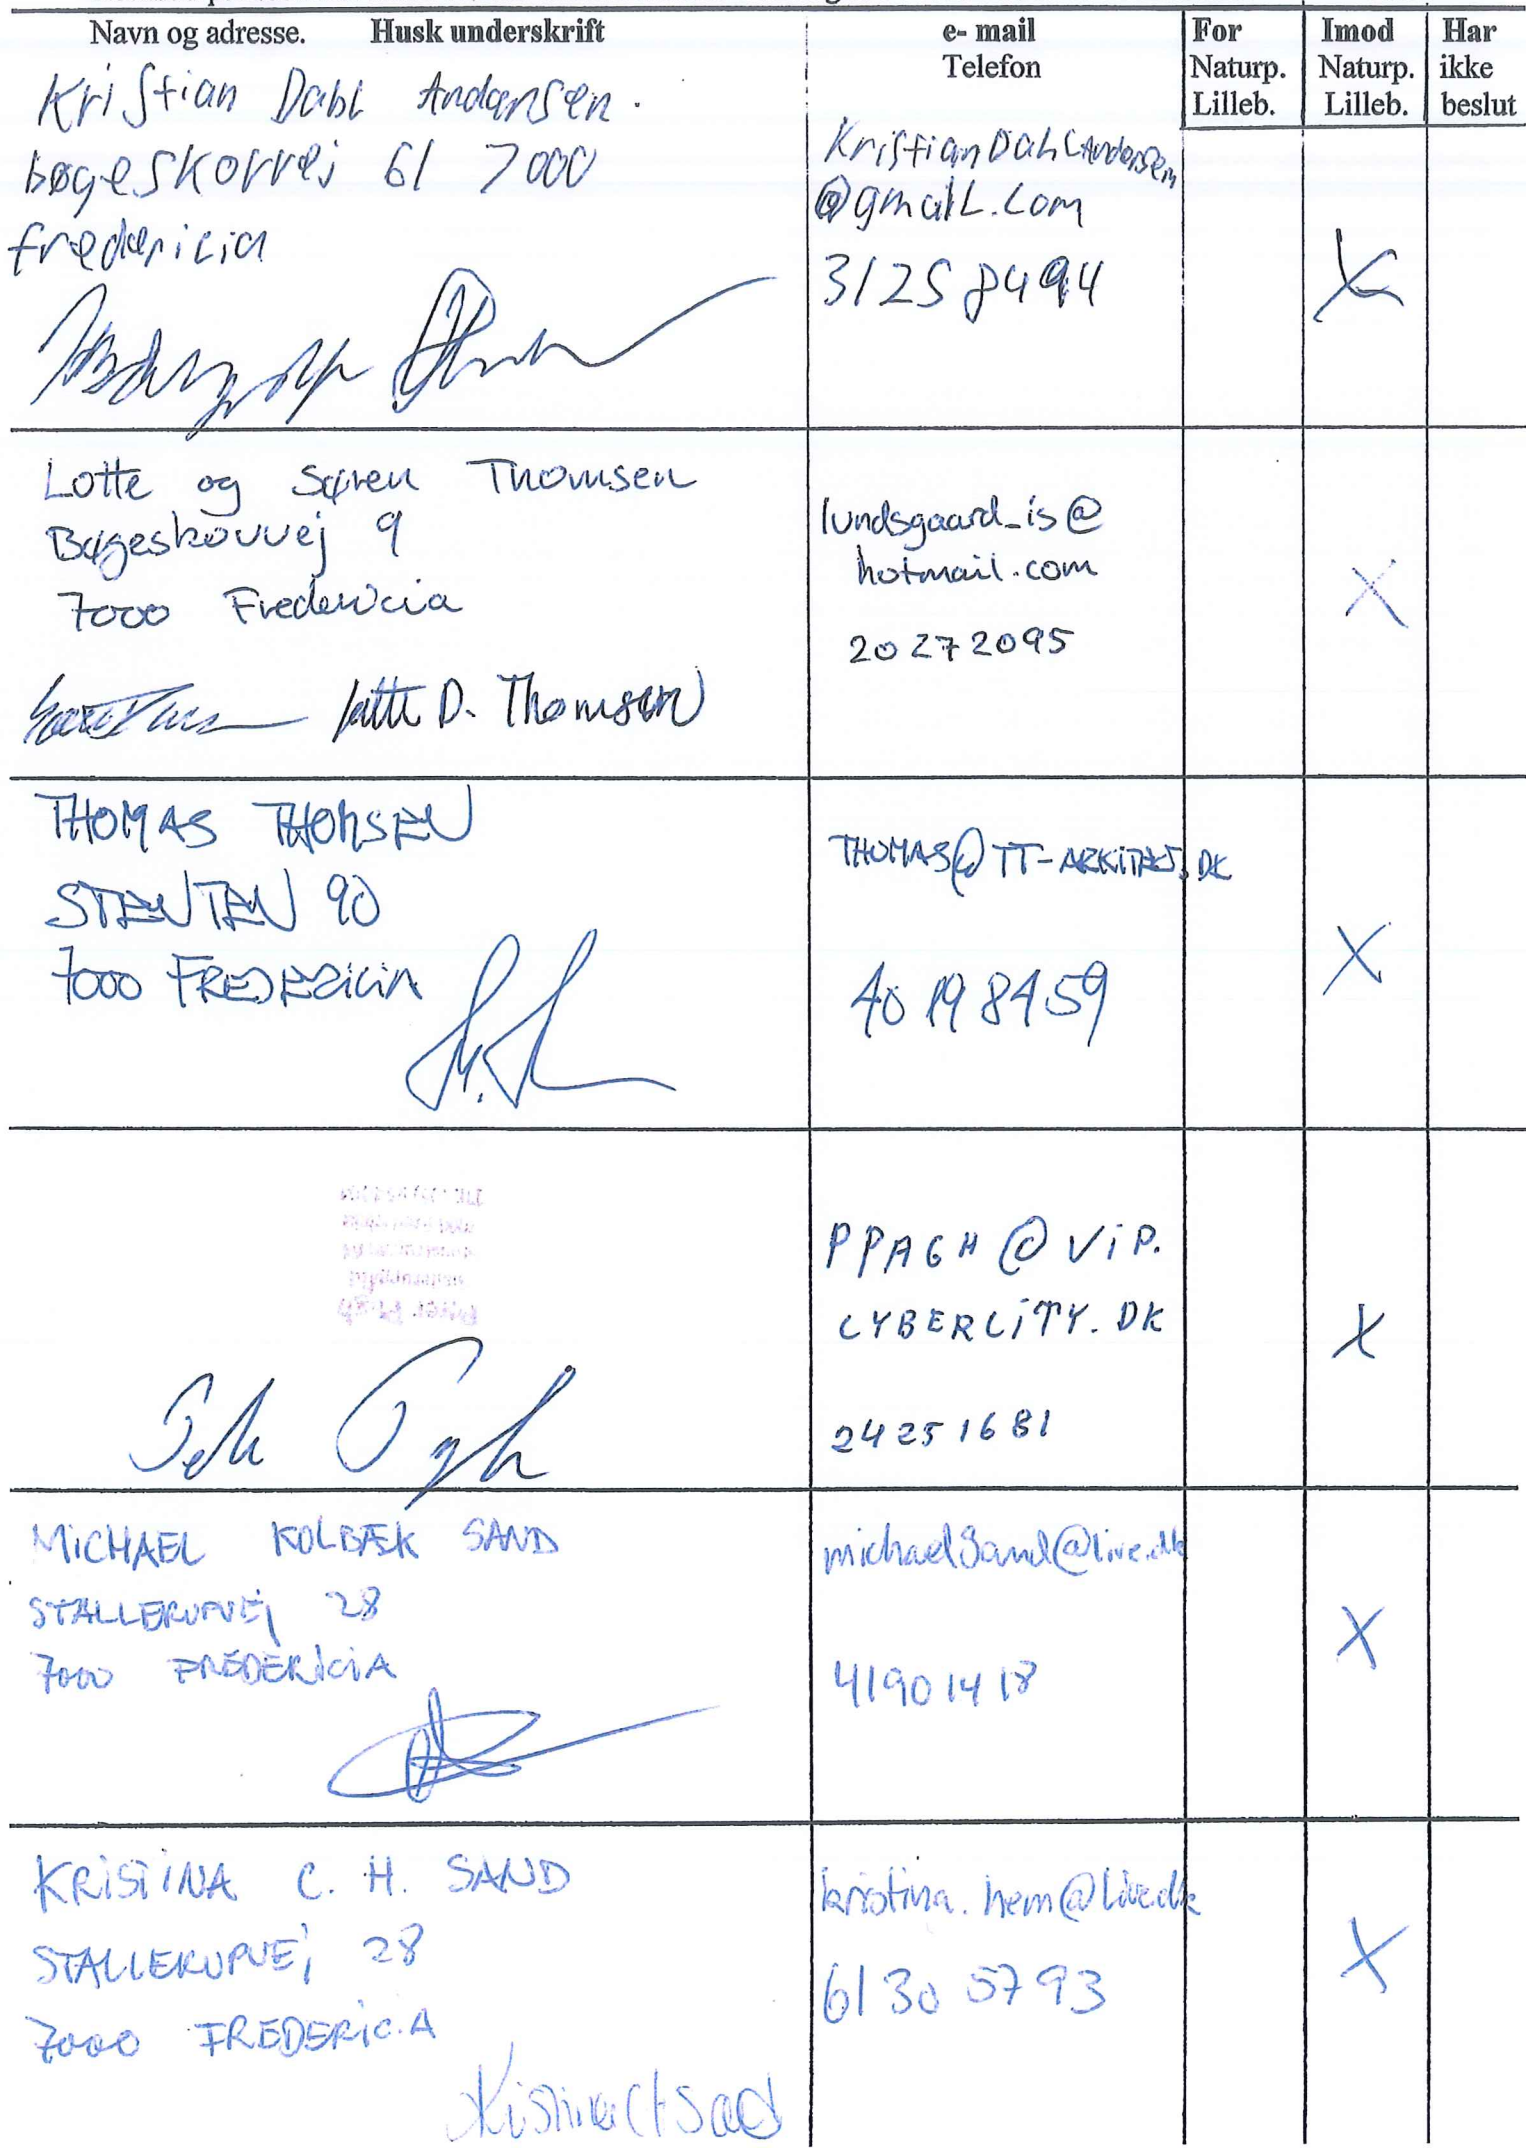 Navn og adresse. Husk underskrift
e- mail
Telefon
For
Naturp.
Lilleb.
Imod
Naturp.
Lilleb.
Har
ikke
beslut
Kristian Dahl Andersen.
bøgeskovvej 61 7000
fredericia
KristianDahlAndersen
@gmail.com
3125 8494
X
Lotte og Søren Thomsen
Bøgeskovvej 9
7000 Fredericia
Lotte D. Thomsen
lundsgaard_is@
hotmail.com
20 27 2095
X
THOMAS THOMSEN
STENTEN 90
7000 FREDERICIA
THOMAS@TT-ARKITEKT.DK
40 19 84 59
X
PPAGH@VIP.
CYBERCITY.DK
24 25 16 81
X
MICHAEL KOLBÆK SAND
STALLERUPVEJ 28
7000 FREDERICIA
michaelsand@live.dk
4190 14 18
X
KRISTINA C. H. SAND
STALLERUPVEJ 28
7000 FREDERICIA
kristina.hem@live.dk
61 30 57 93
X